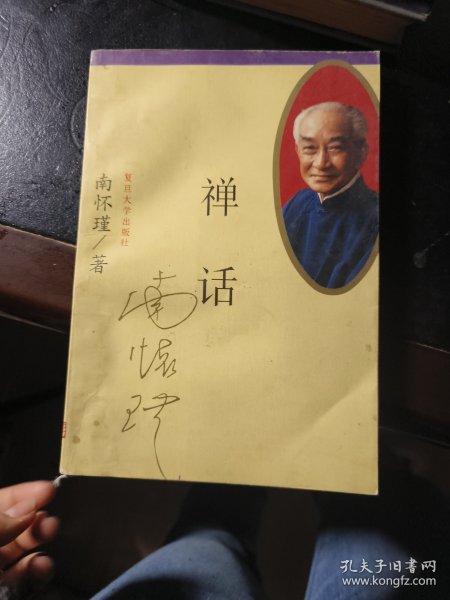 禅话
南怀瑾/著
复旦大学出版社
南怀瑾
孔夫子旧书网
www.kongfz.com